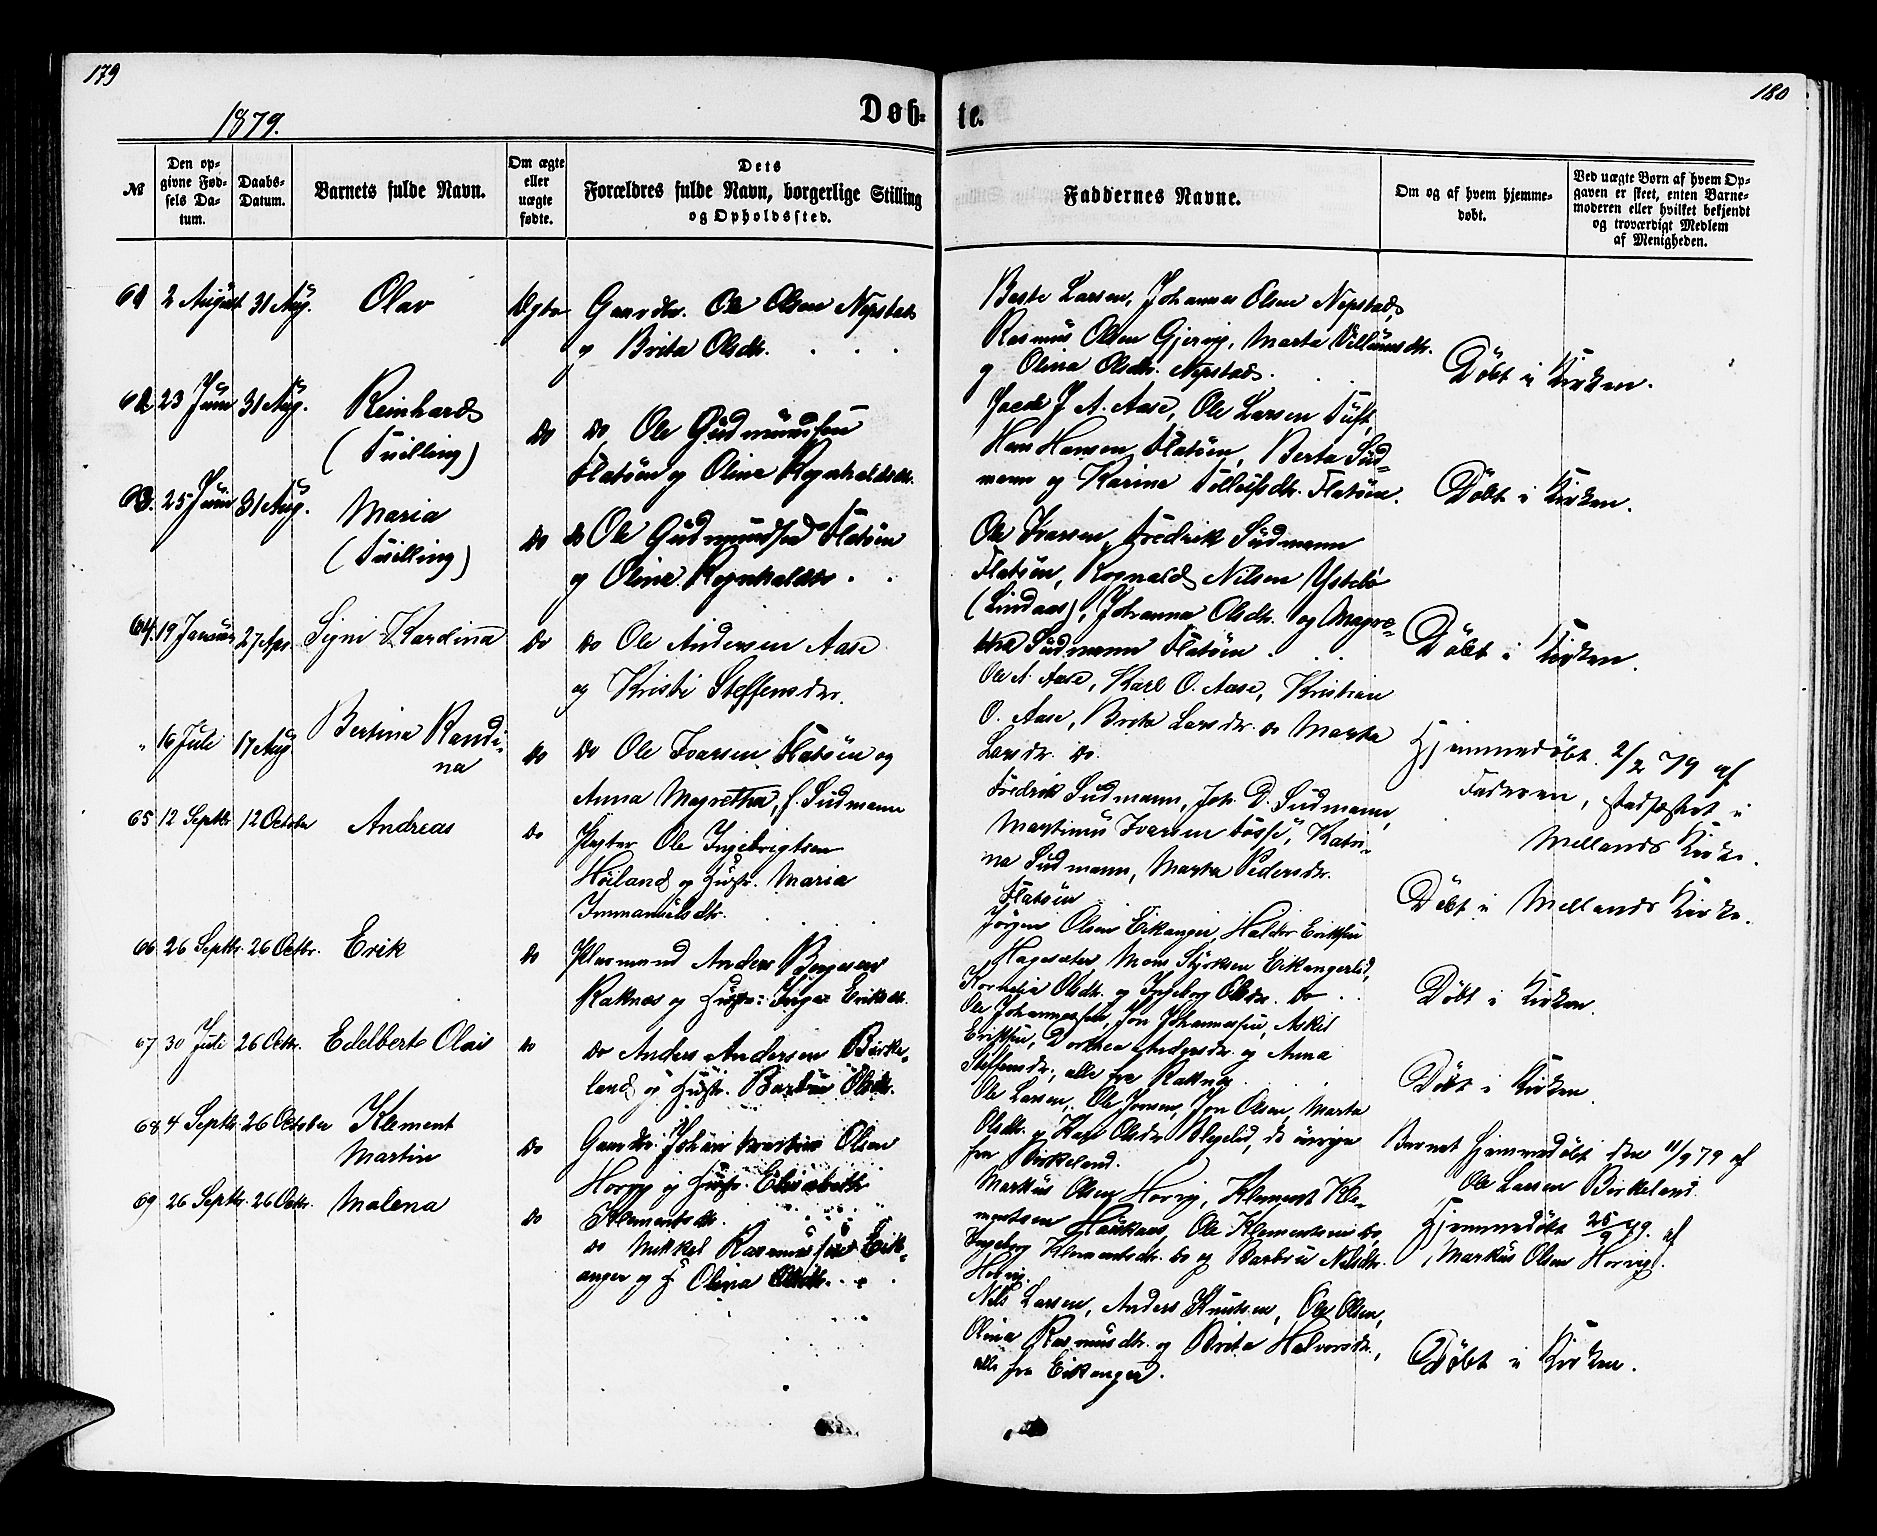 179
1879.
Døb-
Nº
Den op-
givne Fød-
sels Da-
tum.
Daabs-
Datum.
Barnets fulde Navn.
Om ægte
eller
uægte
fødte.
Dets
Forældres fulde Navn, borgerlige Stilling
og Opholdssted.
61 2 August 31 Aug. Olav Ægte Gaardbr. Ole Olsen Nepstad
og Brita Olsdtr.
62 23 Juni 31 Aug. Reinhard
(Tvilling) do do Ole Gudmundsen
Flatøen og Oline Rognhaldsdtr.
63. 25 Juni 31 Aug. Maria
(Tvilling) do do Ole Gudmundsen Flatøen
og Oline Rognhaldsdtr.
64. 19 Januar 27 Apr. Signi Kardina do do Ole Andersen Aase
og Kristi Steffensdtr.
" 16 Juli 17 Aug Bertina Randi-
na do do Ole Ivarsen Flatøen og
Anna Magretha, f. Sudmann
65 12 Septbr 12 October Andreas do Ole Ingebrigtsen
Høiland og Hustr. Maria
Immanuelsdtr.
66 26 Septbr. 26 Octbr. Erik do Plasmand Anders Børgesen
Raknes og Hustr: Inga Eriksdtr.
67 30 Juli 26 Octbr. Edelbert Olai do do Anders Andersen Birke-
land og Hustr. Barbru Olsdtr.
68 4 Septbr. 26 October Klement
Martin do Gaardbr. Johan Martin Olsen
Horvig og Hustr. Elisabeth
Klementsdtr.
69 26 Septbr. 26 Octbr. Malena do do Mikkel Rasmussen Eik-
anger og H. Olina Olsdtr.
180
te.
Faddernes Navne.
Om og af hvem hjemme-
døbt.
Ved uægte Børn af hvem Op-
gaven er skeet, enten Barne-
moderen eller hvilket bekjendt
og troværdigt Medlem
af Menigheden.
Larsen, Johannes Olsen Nepstad,
Rasmus Olsen Gjervig, Marta Villumsdtr.
og Olina Olsdtr. Nepstad.
Døbt i Kirken.
J. A. Aase, Ole Larsen Tuft,
Hans Hansen Flatøen, Berta Sud-
mann og Karina Tollefsdtr. Flatøen.
Døbt i Kirken.
Ole Ivarsen, Fredrik Sudmann
Flatøen, Rognald Nilsen Ystebø
(Lindaas), Johanna Olsdtr. og Magre-
tha Sudmann Flatøen.
Døbt i Kirken.
Ole A. Aase, Karl O. Aase, Kristian
O. Aase, Brita Larsdtr. do Marta
Larsdtr. do.
Hjemmedøbt 2/2 79 af
Faderen, stadfæstet i
Mellands Kirke.
Fredrik Sudmann, Joh. D. Sudmann,
Martinus Ivarsen Fosse, Katri-
na Sudmann, Marta Pedersdtr.
Flatøen
Døbt i Mellands Kirke.
Jørgen Olsen Eikanger, Haldor Eriksen
Hagesæter, Mons Styrksen Eikangerlid,
Kornelia Olsdtr. og Ingeborg Olsdtr. do
Døbt i Kirken.
Ole Johannessen, Jon Johannessen, Askil
Eriksen, Dorthea Andersdtr. og Anna
Steffensdtr., alle fra Raknes
Døbt i Kirken.
Ole Larsen, Ole Jonsen, Jon Olsen, Marta
Olsdtr. og Kari Olsdtr. de øvrige
fra Birkeland.
Barnet hjemmedøbt den 11/9 79 af
Ole Larsen Birkeland.
Markus Olsen Horvig, Klement Kle-
mentsen Haukaas, Ole Klementsen do,
Ingeborg Klementsdtr. do og Barbru Nilsdtr.
Horvig.
Hjemmedøbt 25/9 79. af
Markus Olsen Horvig.
Nils Larsen, Anders Knutsen, Ole Olsen,
Olina Rasmusdtr. og Brita Halvorsdtr.,
alle fra Eikanger.
Døbt i Kirken.